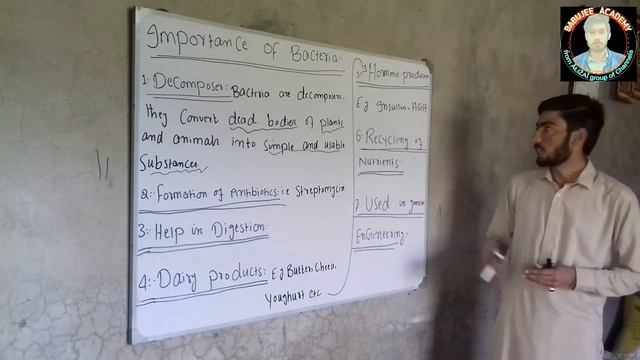 Importance of Bacteria:-
1:- Decomposer:- Bacteria are decomposers.
They Convert dead bodies of plants
and animals into simple and usable
Substances.
2:- Formation of Antibiotics:- i.e Streptomycin
3:- Help in Digestion:-
4:- Dairy products:- E.g Butter, Cheese,
Youghurt etc
5:- Hormone production
E.g Insullin, HGH
6:- Recycling of
Nutrients:-
7:- Used in genetic
Engineering:-
BABUJEE ACADEMY
from ALIZAI group of Channels